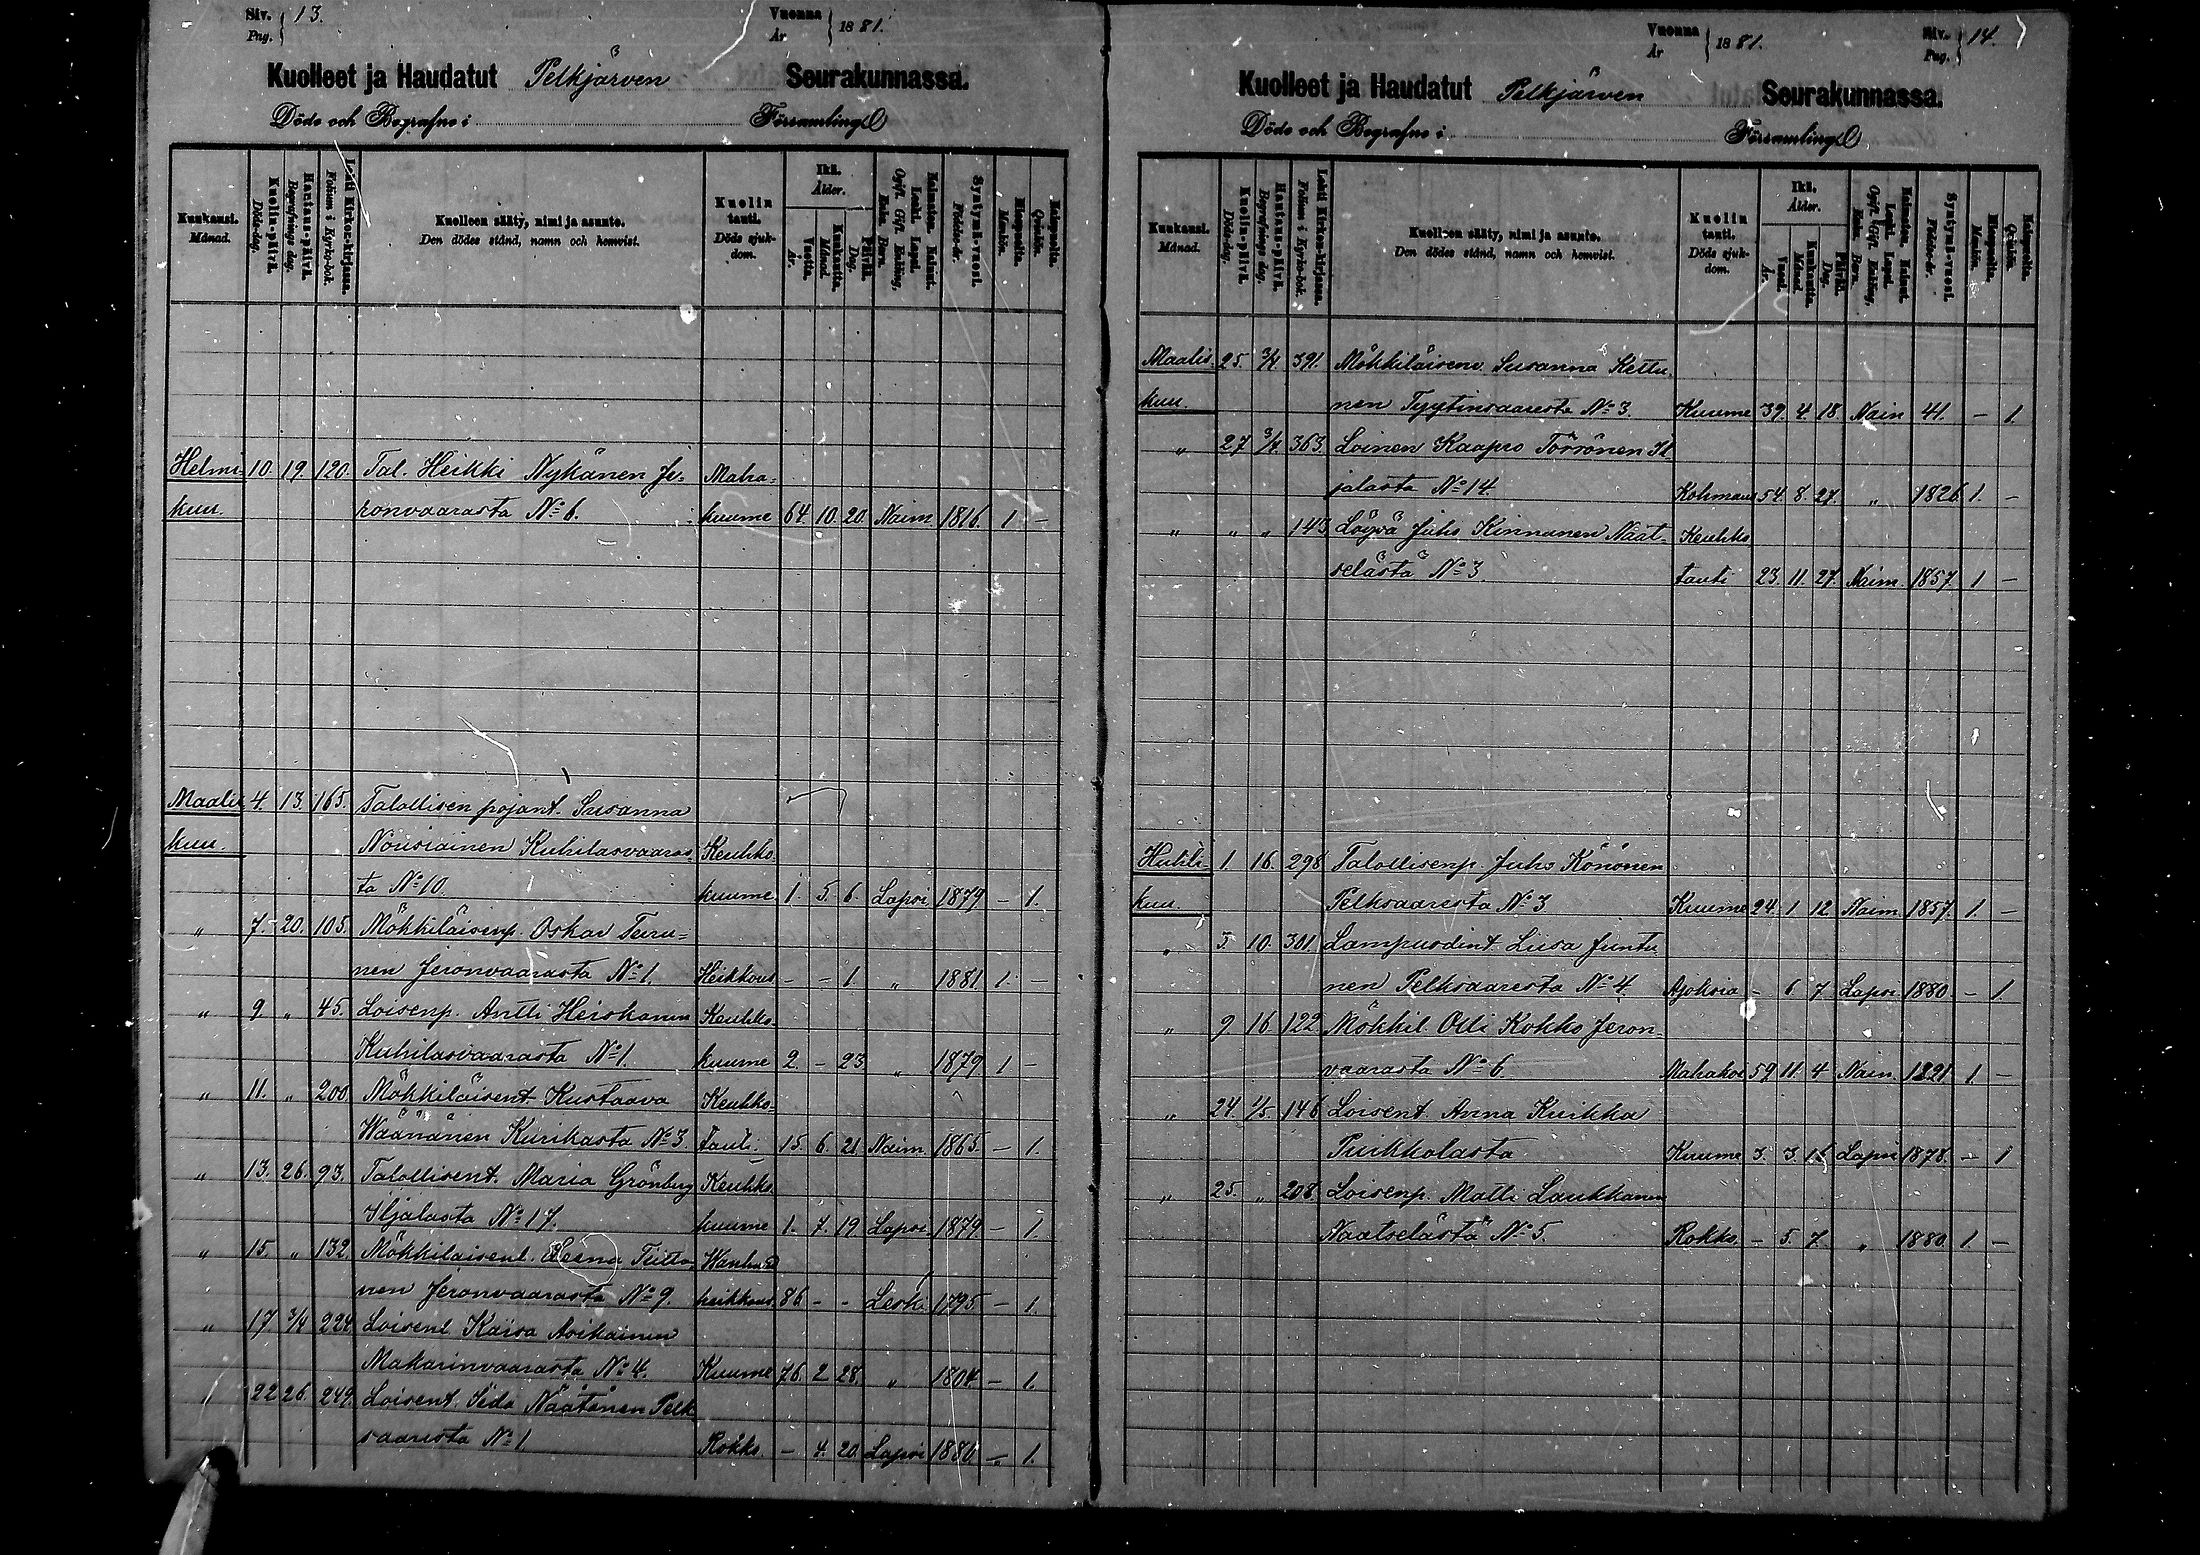 Siv. 13. Vuonna 1881.
Pag. År
Kuolleet ja Haudatut Pelkjärven Seurakunnassa.
Döde och Begrafne i Församling
Kuukausi. Månad.
Kuolin-päivä. Döds-dag.
Hautaus-päivä. Begrafnings dag.
Lehti Kirkon-kirjassa. Folium i Kyrko-bok.
Kuolleen sääty, nimi ja asunto.
Den dödes stånd, namn och hemvist.
Kuolin tauti. Döds sjuk-dom.
Ikä. Ålder.
Vuotta. År.
Kuukautta. Månad.
Päivää. Dag.
Naimaton. Nainut. Leski. Lapsi.
Ogift. Gift. Enkling, Enka. Barn.
Syntymä-vuosi. Födelse-år.
Miespuolta. Mankön.
Vaimopuolta. Qvinkön.
Helmi- 10. 19. 120. Tal. Heikki Nykänen Je- Maha-
kuu. ronvaarasta No 6. kuume 64. 10. 20. Naim. 1816. 1 —
Maalis 4. 13. 165. Talollisen pojant. Susanna
kuu. Nousiainen Kuhilasvaaras Keuhko
ta No 10. kuume 1. 5. 6. Lapsi 1879 — 1.
„ 7. 20. 105. Mökkiläisenp. Oskar Teru-
nen Jeronvaarasta No 1. Heikkous — — 1. „ 1881 1. —
„ 9 „ 45. Loisenp. Antti Heiskanen Keuhko-
Kuhilasvaarasta No 1. kuume 2. — 23 „ 1879 1 —
„ 11. „ 200 Mökkiläisent. Kustaava Keuhko-
Wäänänen Kurikasta No 3. tauti. 15. 6. 21 Naim 1865. — 1.
„ 13. 26. 93. Talollisent. Maria Grönberg Keuhko
Iljalasta No 17. kuume 1. 7. 19 Lapsi 1879 — 1.
„ 15. „ 132. Mökkiläisenl. Leena Wanhuud
nen Jeronvaarasta No 9. heikkous 86 — — Leski. 1795 — 1.
„ 17 3/4 224 Loisenl. Kaisa Asikainen
Makarinvaarasta No 4. Kuume 76. 2 28. „ 1804. — 1.
22 26. 249. Loisent. Näätänen Pelk
saaresta No 1 Rokko. — 4. 20. Lapsi 1880 — 1.
Vuonna 1881. Siv. 14.
År Pag.
Kuolleet ja Haudatut Pelkjärven Seurakunnassa.
Döde och Begrafne i Församling
Kuukausi. Månad.
Kuolin-päivä. Döds-dag.
Hautaus-päivä. Begrafnings dag.
Lehti Kirkon-kirjassa. Folium i Kyrko-bok.
Kuolleen sääty, nimi ja asunto.
Den dödes stånd, namn och hemvist.
Kuolin tauti. Döds sjuk-dom.
Ikä. Ålder.
Vuotta. År.
Kuukautta. Månad.
Päivää. Dag.
Naimaton. Nainut. Leski. Lapsi.
Ogift. Gift. Enkling, Enka. Barn.
Syntymä-vuosi. Födelse-år.
Miespuolta. Mankön.
Vaimopuolta. Qvinkön.
Maalis. 25. 3/4. 391. Mökkiläisenv. Susanna Kettu
kuu. nen Tyytinsaaresta No 3. Kuume 39. 4. 18. Nain 41. — 1.
„ 27 3/4. 363. Loinen Kaapro Törrönen Il
jalasta No 14. Kohmaus 54. 8. 27. „ 1826 1. —
„ „ „ 143 Löyvä Juho Kinnunen Näät- Keuhko
selästä No 3. tauti 23. 11. 27. Naim. 1857. 1 —
Huhti- 1. 16. 298 Talollisenp. Juho Könönen
kuu. Pelksaaresta No 3. Kuume 24. 1 12. Naim. 1857. 1. —
„ 5 10. 301 Lampuodint. Liisa Juntu
nen Pelksaaresta No 4. Ajoksia — 6 7 Lapsi 1880 — 1.
„ 9 16 122 Mökkil. Olli Kokko Jeron-
vaarasta No 6. 59 11. 4 Nain. 1821 1. —
„ 24. 1/5 146 Loisent. Anna Kuikka
Puikkolasta Kuume 3. 3. Lapsi 1878. — 1
„ 25. „ 208. Loisenp. Matti Laukkanen
Näätselästä No 5. Rokko — 5. 7. „ 1880 1. —